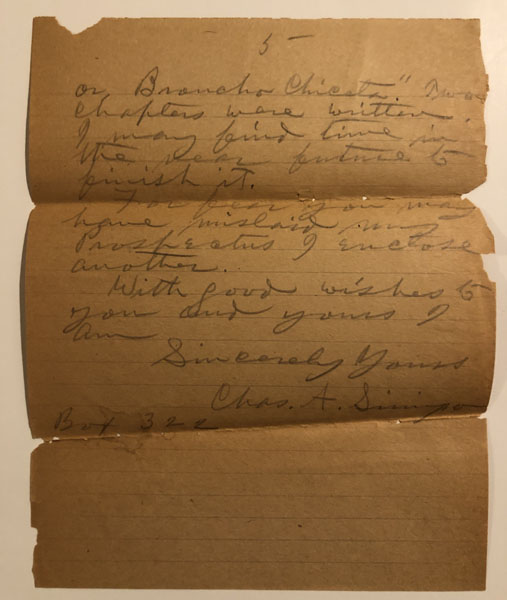 5
or Broncho Chicata." Two
chapters were written.
I may find time in
the near future to
finish it.
For fear you may
have mislaid my
Prospectus I enclose
another.
With good wishes to
you and yours I
am
Sincerely Yours
Chas. A. Siringo
Box 322